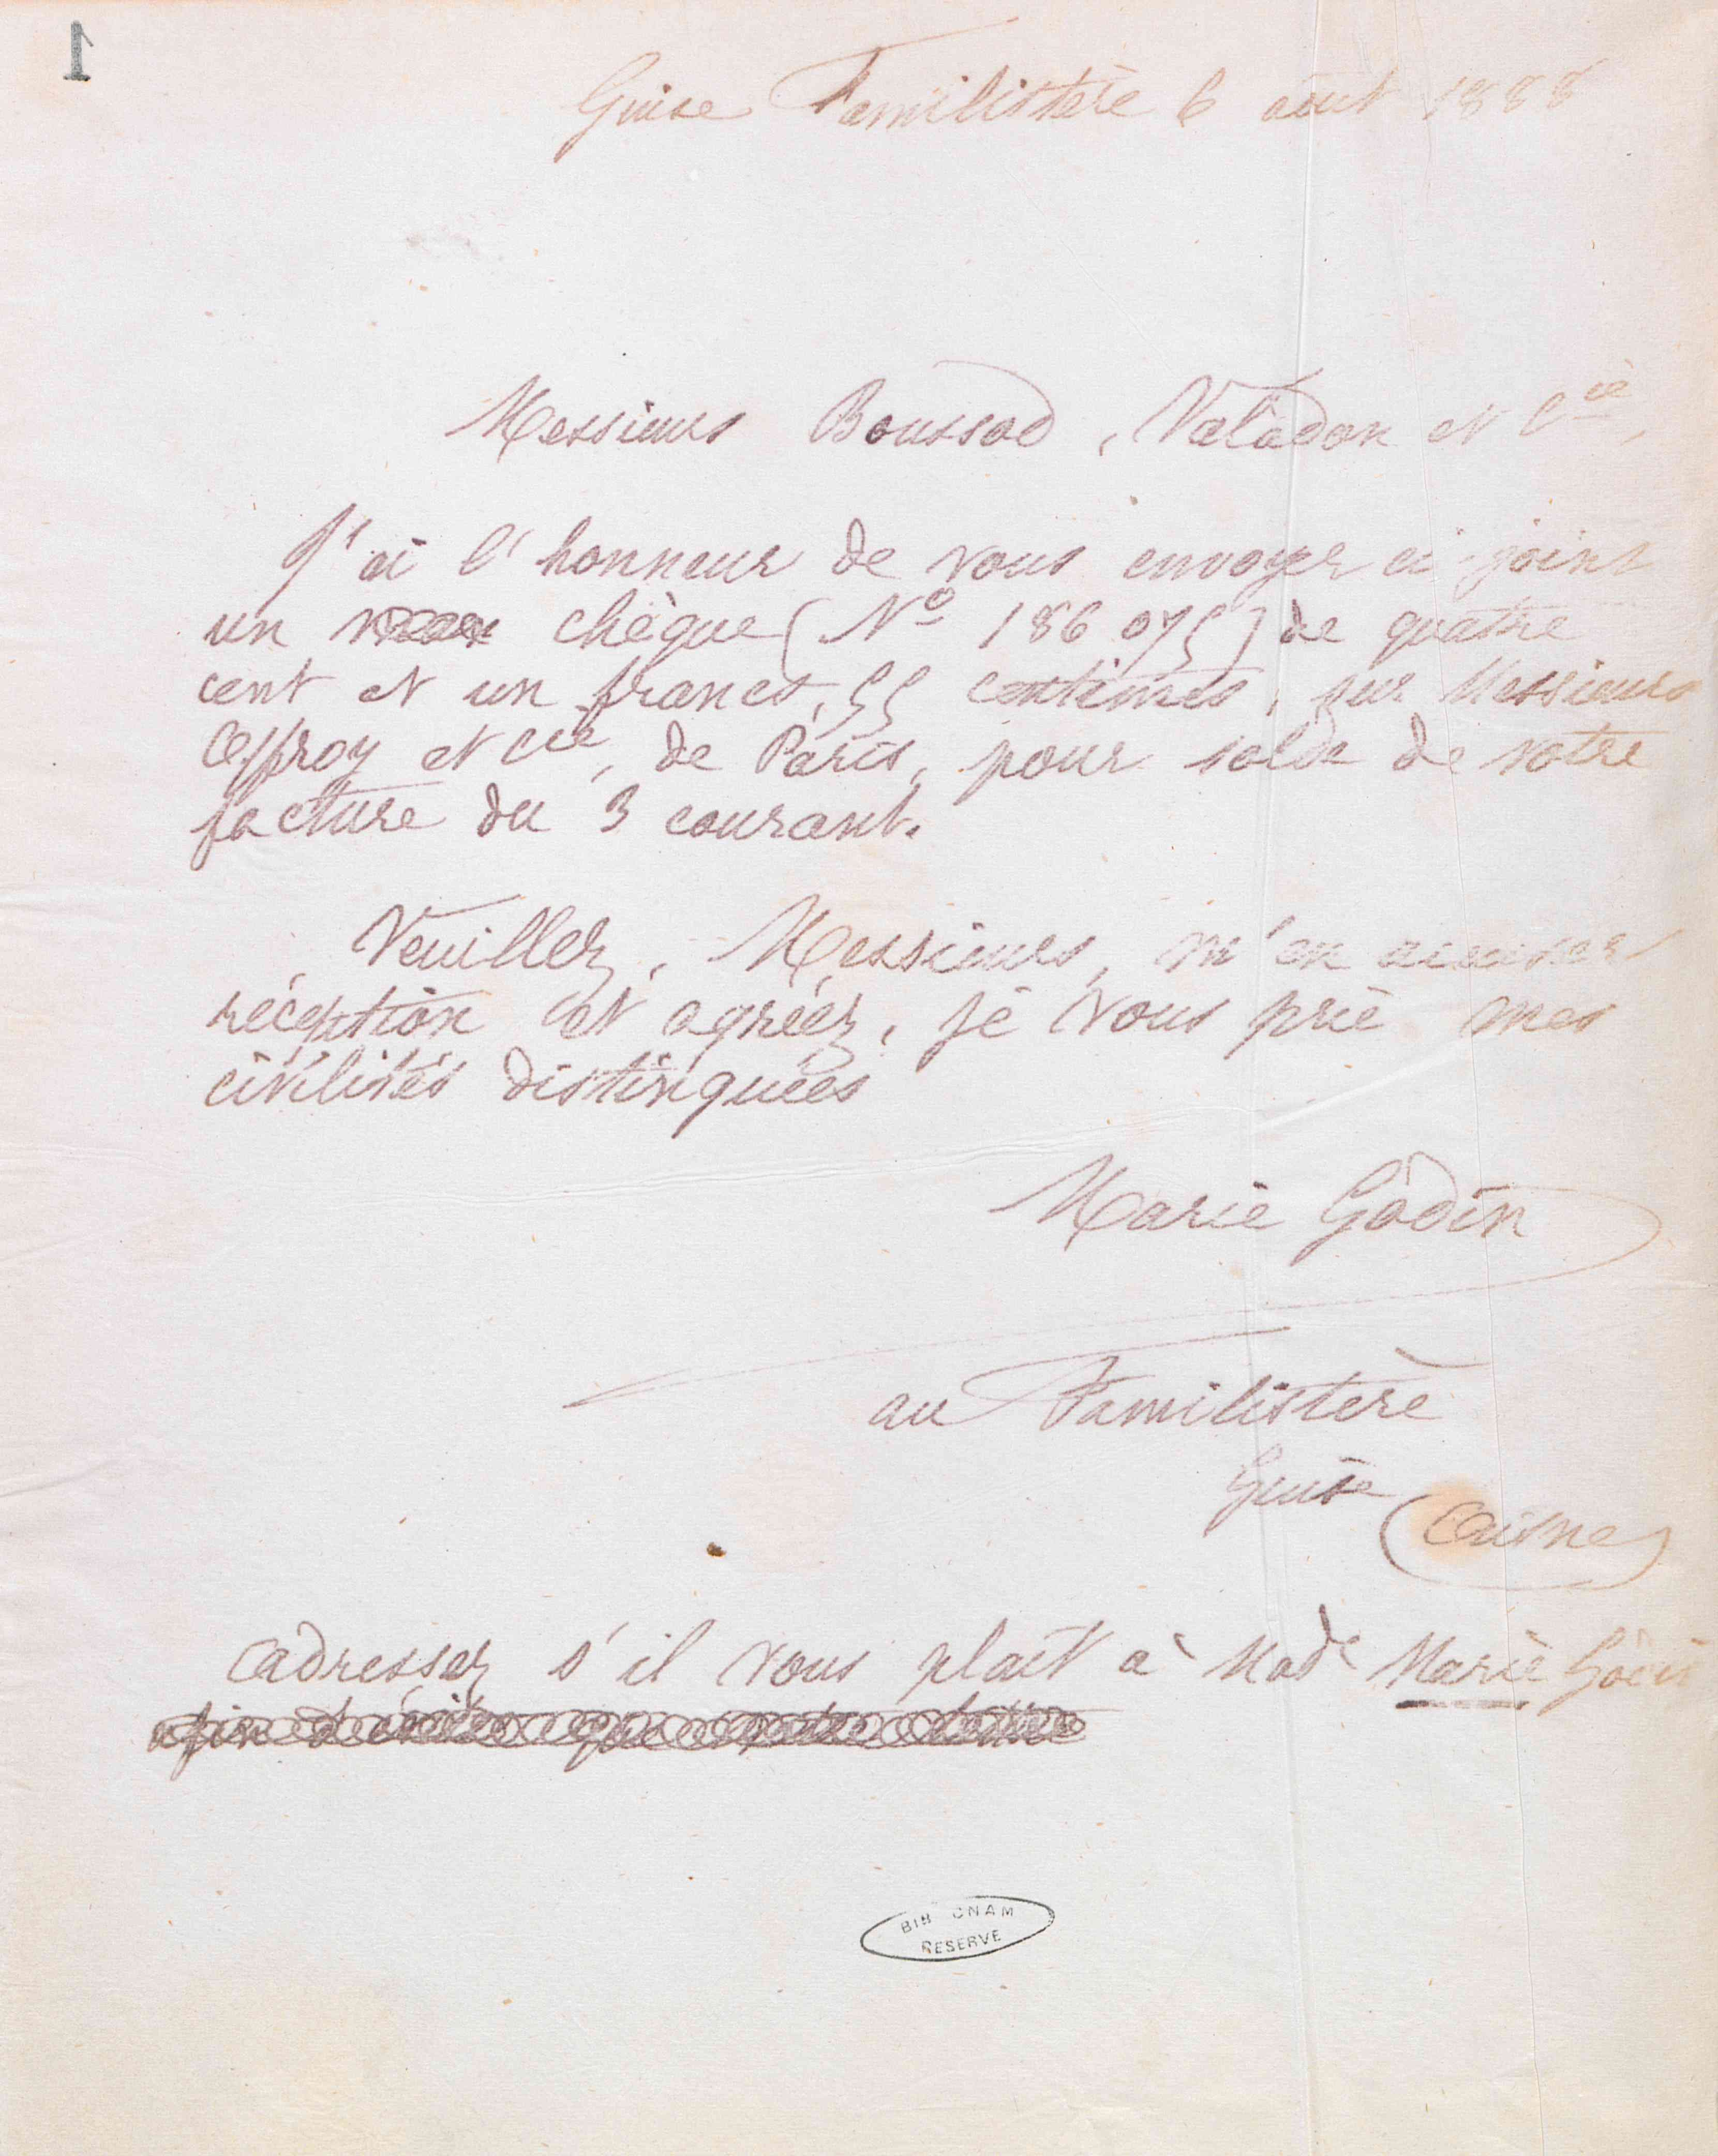 1
Guise Familistère 6 août 1888
Messieurs Boussod, Valadon et Cie,
J'ai l'honneur de vous envoyer ci-joint
un chèque (No 186 075) de quatre
cent et un francs, 55 centimes, sur Messieurs
Offroy et Cie, de Paris, pour solde de votre
facture du 3 courant.
Veuillez, Messieurs, m'en accuser
réception et agréer, je vous prie mes
civilités distinguées
Marie Godin
au Familistère
Guise
(Aisne)
adresser s'il vous plaît à Made Marie Godin
afin d'éviter que votre lettre
BIB CNAM
RESERVE